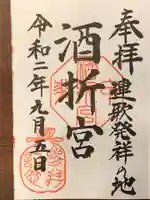 奉拝
連歌発祥の地
酒折宮
令和二年九月五日